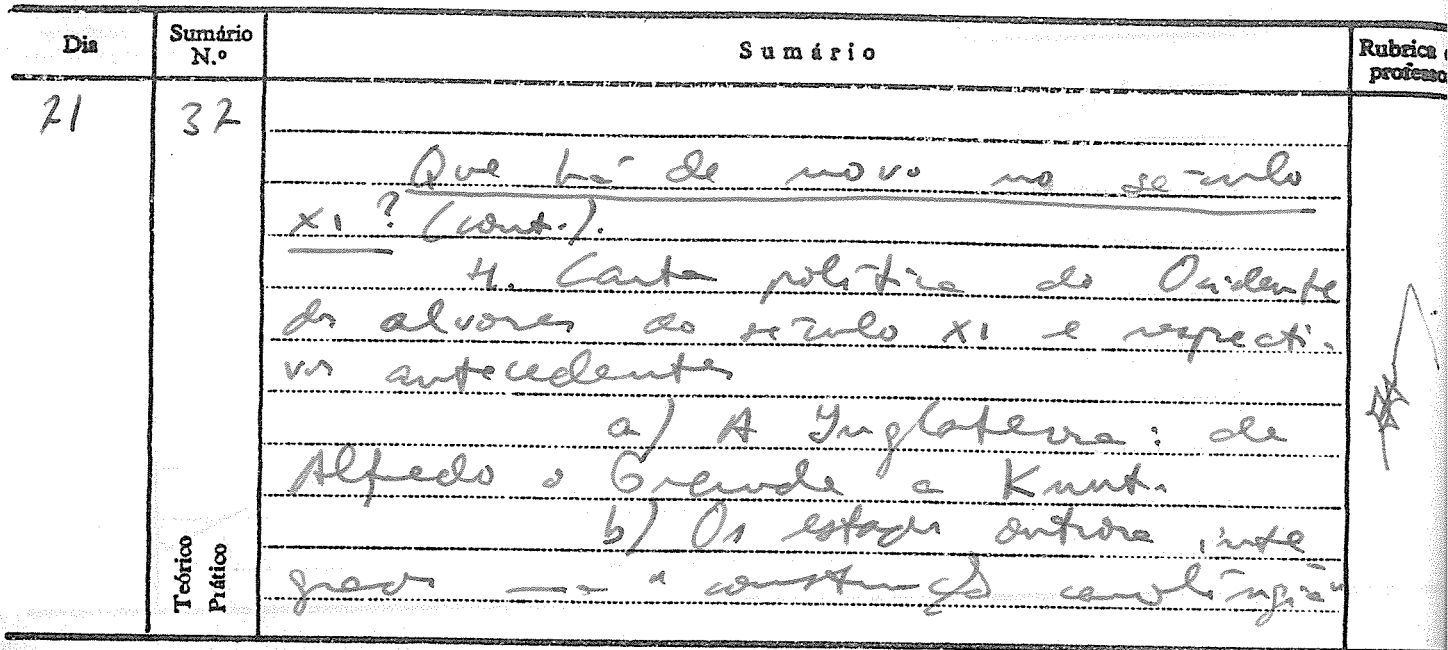 Dia Sumário N.º Sumário Rubrica professo
21 32
Que há de novo no século
XI? (cont.).
4. Carta política do Ocidente
dos alvores do século XI e respecti-
vos antecedentes
a) A Inglaterra: de
Alfredo o Grande a Knut.
b) Os estados outrora inte
grados na "construção carolíngia"
Teórico
Prático